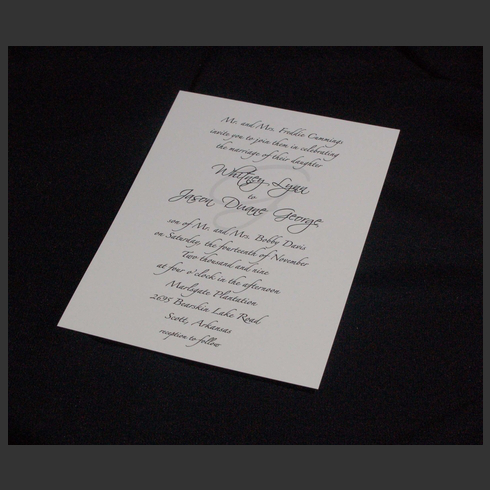 Mr. and Mrs. Freddie Cummings
invite you to join them in celebrating
the marriage of their daughter
Whitney Lynn
to
Jason Duane George
son of Mr. and Mrs. Bobby Davis
on Saturday, the fourteenth of November
Two thousand and nine
at four o'clock in the afternoon
Marlsgate Plantation
2695 Bearskin Lake Road
Scott, Arkansas
reception to follow